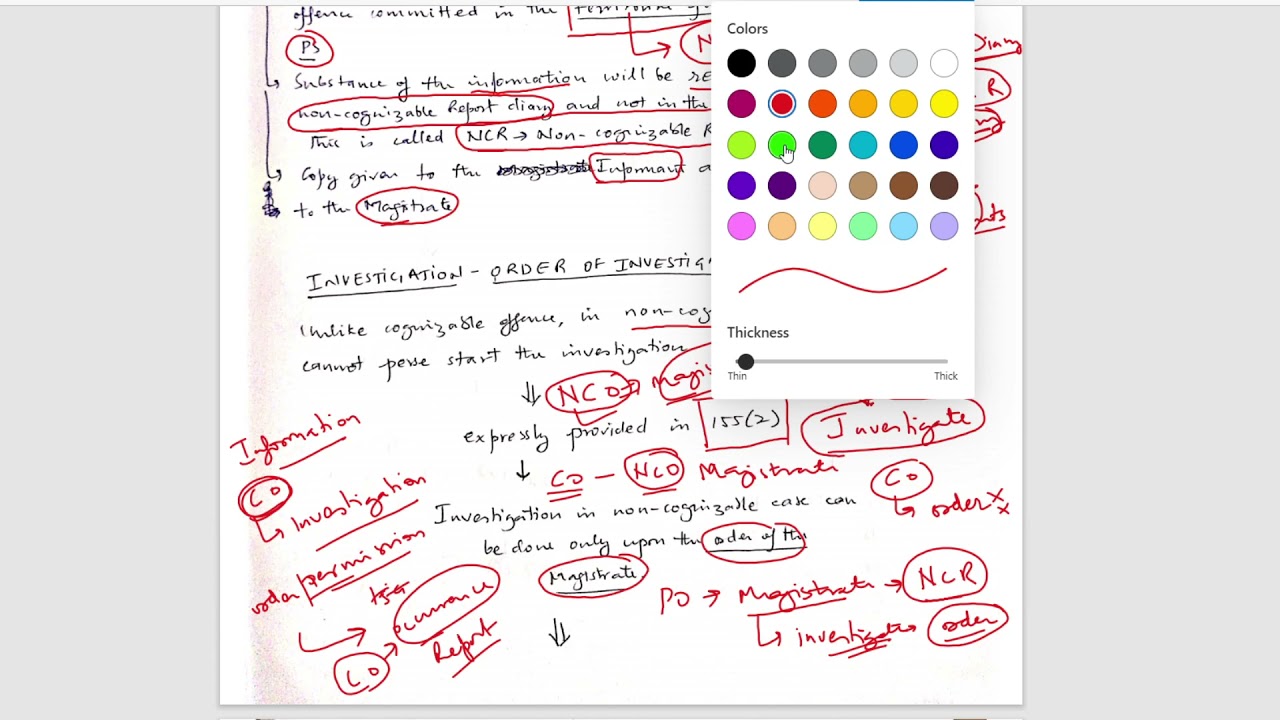 offence committed in the
PS
Substance of the information will be
non-cognizable Report diary and not in the
This is called NCR → Non-cognizable R
Copy given to the Informant
to the Magistrate
INVESTIGATION - ORDER OF INVESTIG
Unlike cognizable offence, in non-cog
cannot perse start the investigation
⇓ NCO → Magis
expressly provided in 155(2) Investigate
↓ CO - NCO Magistrate
CO
↳ order xx
Investigation in non-cognizable case can
be done only upon the order of the
Magistrate
⇓
PO → Magistrate → NCR
↳ investigate order
Information
CO
↳ Investigation
order permission
CO
occurrence
Report
Diary
R
Colors
Thickness
Thin Thick